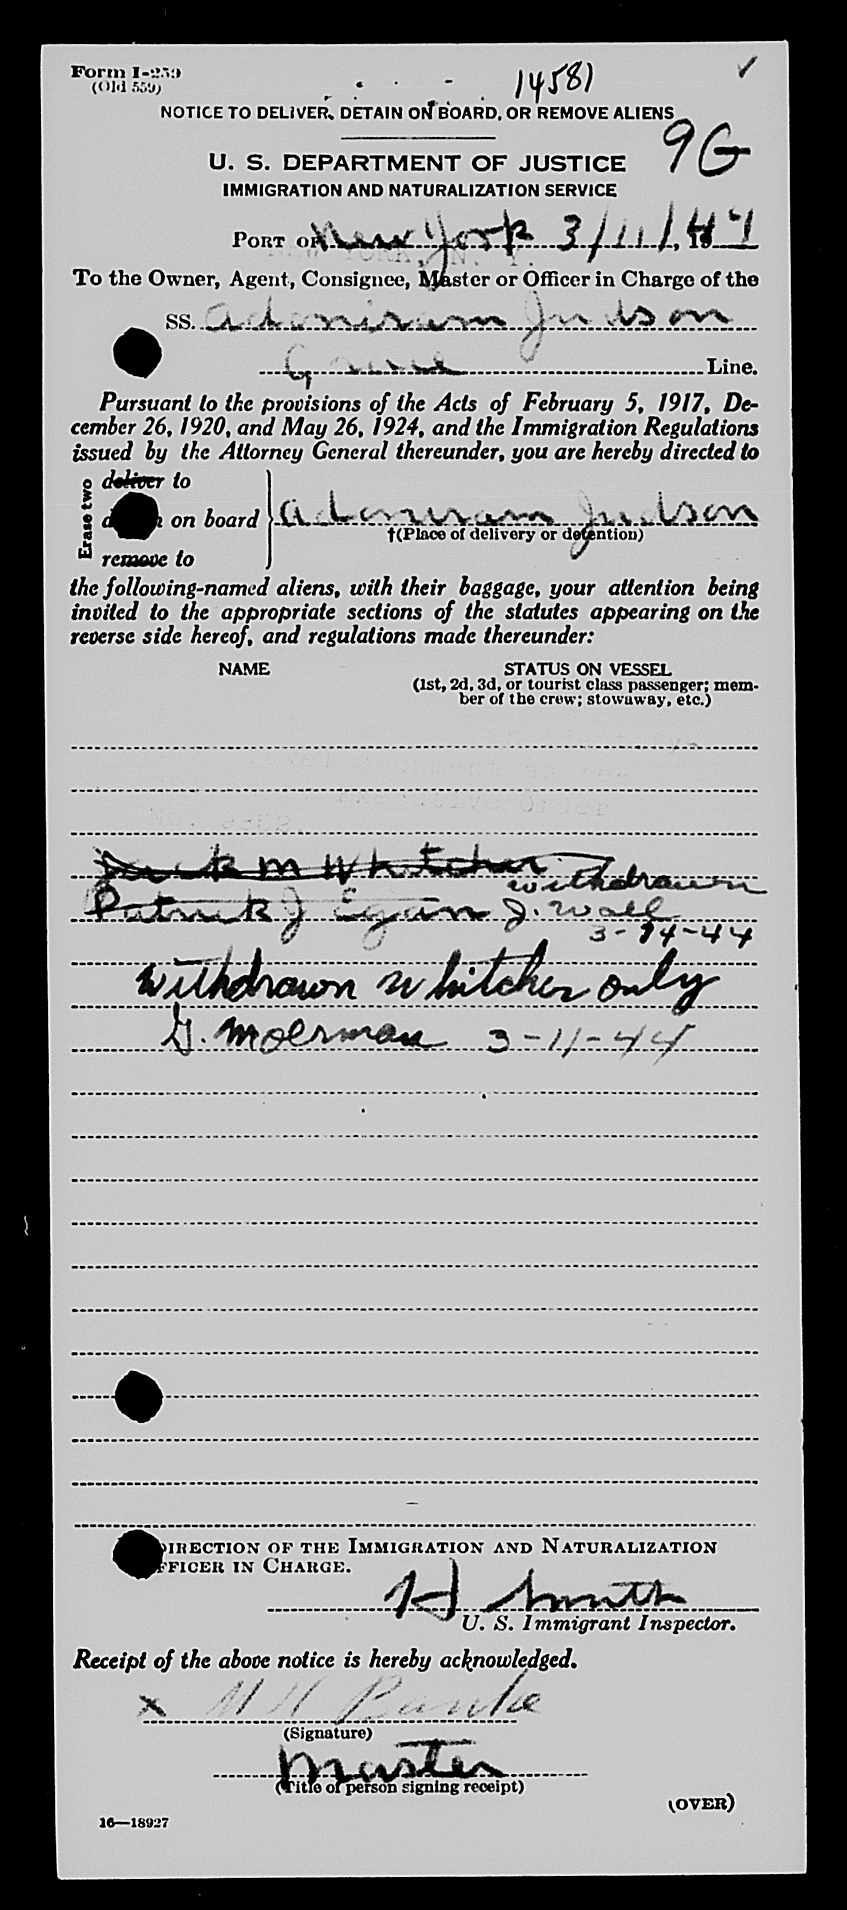 Form I-259
(Old 559)
14581
NOTICE TO DELIVER, DETAIN ON BOARD, OR REMOVE ALIENS
9G
U. S. DEPARTMENT OF JUSTICE
IMMIGRATION AND NATURALIZATION SERVICE
PORT OF New York 3/11/, 19
To the Owner, Agent, Consignee, Master or Officer in Charge of the
SS. Adoniram Judson
Line.
Pursuant to the provisions of the Acts of February 5, 1917, De-
cember 26, 1920, and May 26, 1924, and the Immigration Regulations
issued by the Attorney General thereunder, you are hereby directed to
Erase two
deliver to
on board Adoniram Judson
†(Place of delivery or detention)
remove to
the following-named aliens, with their baggage, your attention being
invited to the appropriate sections of the statutes appearing on the
reverse side hereof, and regulations made thereunder:
NAME STATUS ON VESSEL
(1st, 2d, 3d, or tourist class passenger; mem-
ber of the crew; stowaway, etc.)
M Whitcher
withdrawn
Patrick J Egan J. Wall
3-14-44
Withdrawn Whitcher only
G. Moerman 3-11-44
DIRECTION OF THE IMMIGRATION AND NATURALIZATION
OFFICER IN CHARGE.
Smith
U. S. Immigrant Inspector.
Receipt of the above notice is hereby acknowledged.
x
(Signature)
Master
(Title of person signing receipt)
(OVER)
16—18927